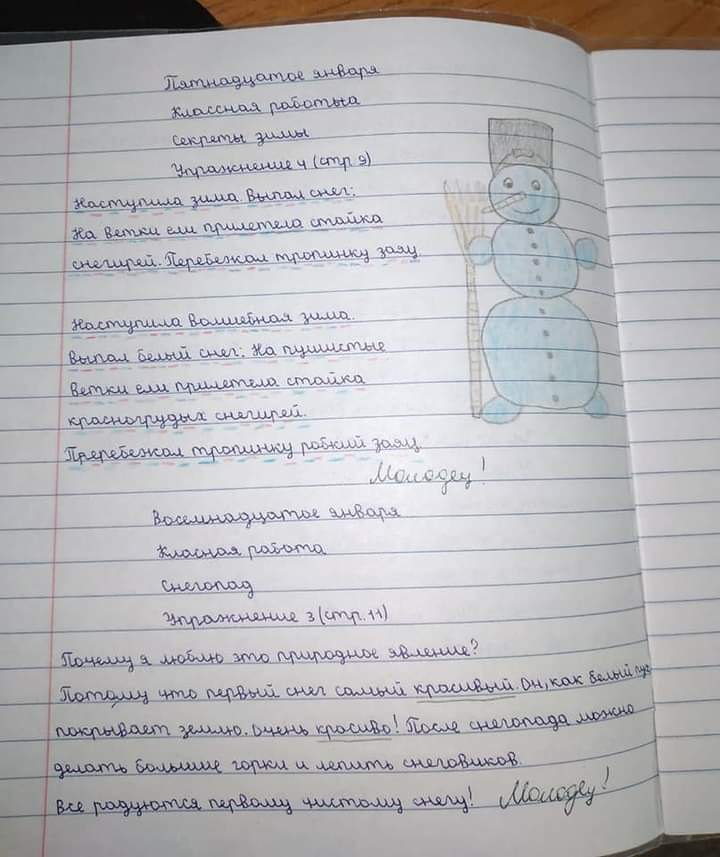 Пятнадцатое января
Классная работыа
Секреты зимы
Упражнение 4 (стр 9)
Наступила зима. Выпал снег:
На ветки ели прилетела стайка
снегирей. Перебежал тропинку заяц.
Наступила волшебная зима.
Выпал белый снег: На пушистые
ветки ели прилетела стайка
красногрудых снегирей.
Преребежал тропинку робкий заяц.
Молодец!
Восемнадцатое января
Класная работа
Снегопад
Упражнение 3 (стр. 11)
Почему я люблю это природное явление?
Потому что первый снег самый красивый. Он, как белый пух
покрывает землю. Очень красиво! После снегопада можно
делать большие горки и лепить снеговиков.
Все радуются первому чистому снегу! Молодец!